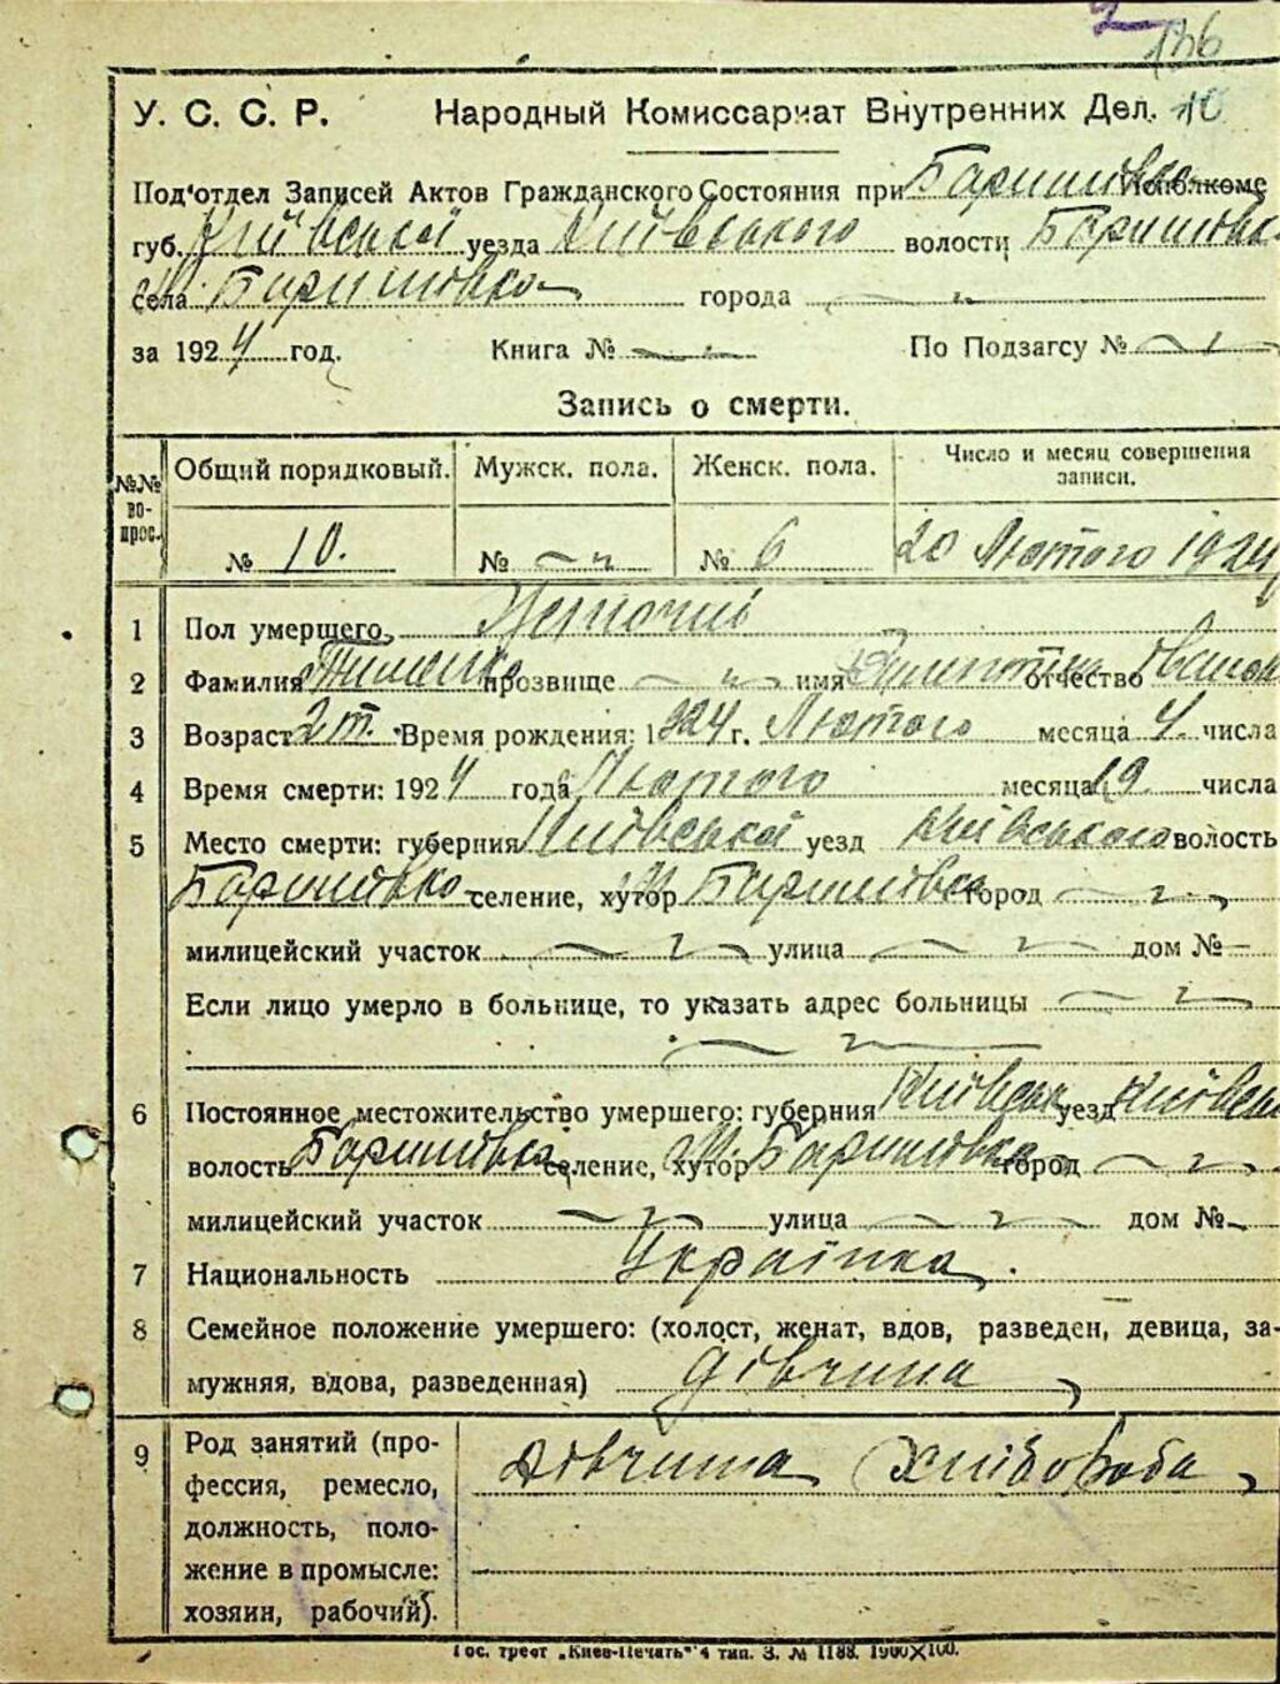 136
У. С. С. Р. Народный Комиссариат Внутренних Дел. 10
Под'отдел Записей Актов Гражданского Состояния при Баришівка Исполкоме
губ. Київської уезда Київського волости Баришівс
села М. Баришівка города
за 1924 год. Книга № По Подзагсу №
Запись о смерти.
№№ вопрос. Общий порядковый. Мужск. пола. Женск. пола. Число и месяц совершения записи.
№ 10. № № 6 20 Лютого 1924
1 Пол умершего Жіночий
2 Фамилия прозвище имя отчество Іванов
3 Возраст 2 т. Время рождения: 1924 г. Лютого месяца 4 числа
4 Время смерти: 1924 года Лютого месяца 19 числа
5 Место смерти: губерния Київської уезд Київського волость
Баришівка селение, хутор М. Баришівка город
милицейский участок улица дом №
Если лицо умерло в больнице, то указать адрес больницы
6 Постоянное местожительство умершего: губерния Київськ уезд Київськ
волость Баришівка селение, хутор М. Баришівка город
милицейский участок улица дом №
7 Национальность Українка.
8 Семейное положение умершего: (холост, женат, вдов, разведен, девица, за-
мужняя, вдова, разведенная) дівчина
9 Род занятий (про- дівчина хлібороба
фессия, ремесло,
должность, поло-
жение в промысле:
хозяин, рабочий).
Гос. трест „Киев-Печать" 4 тип. З. № 1188. 1900×100.